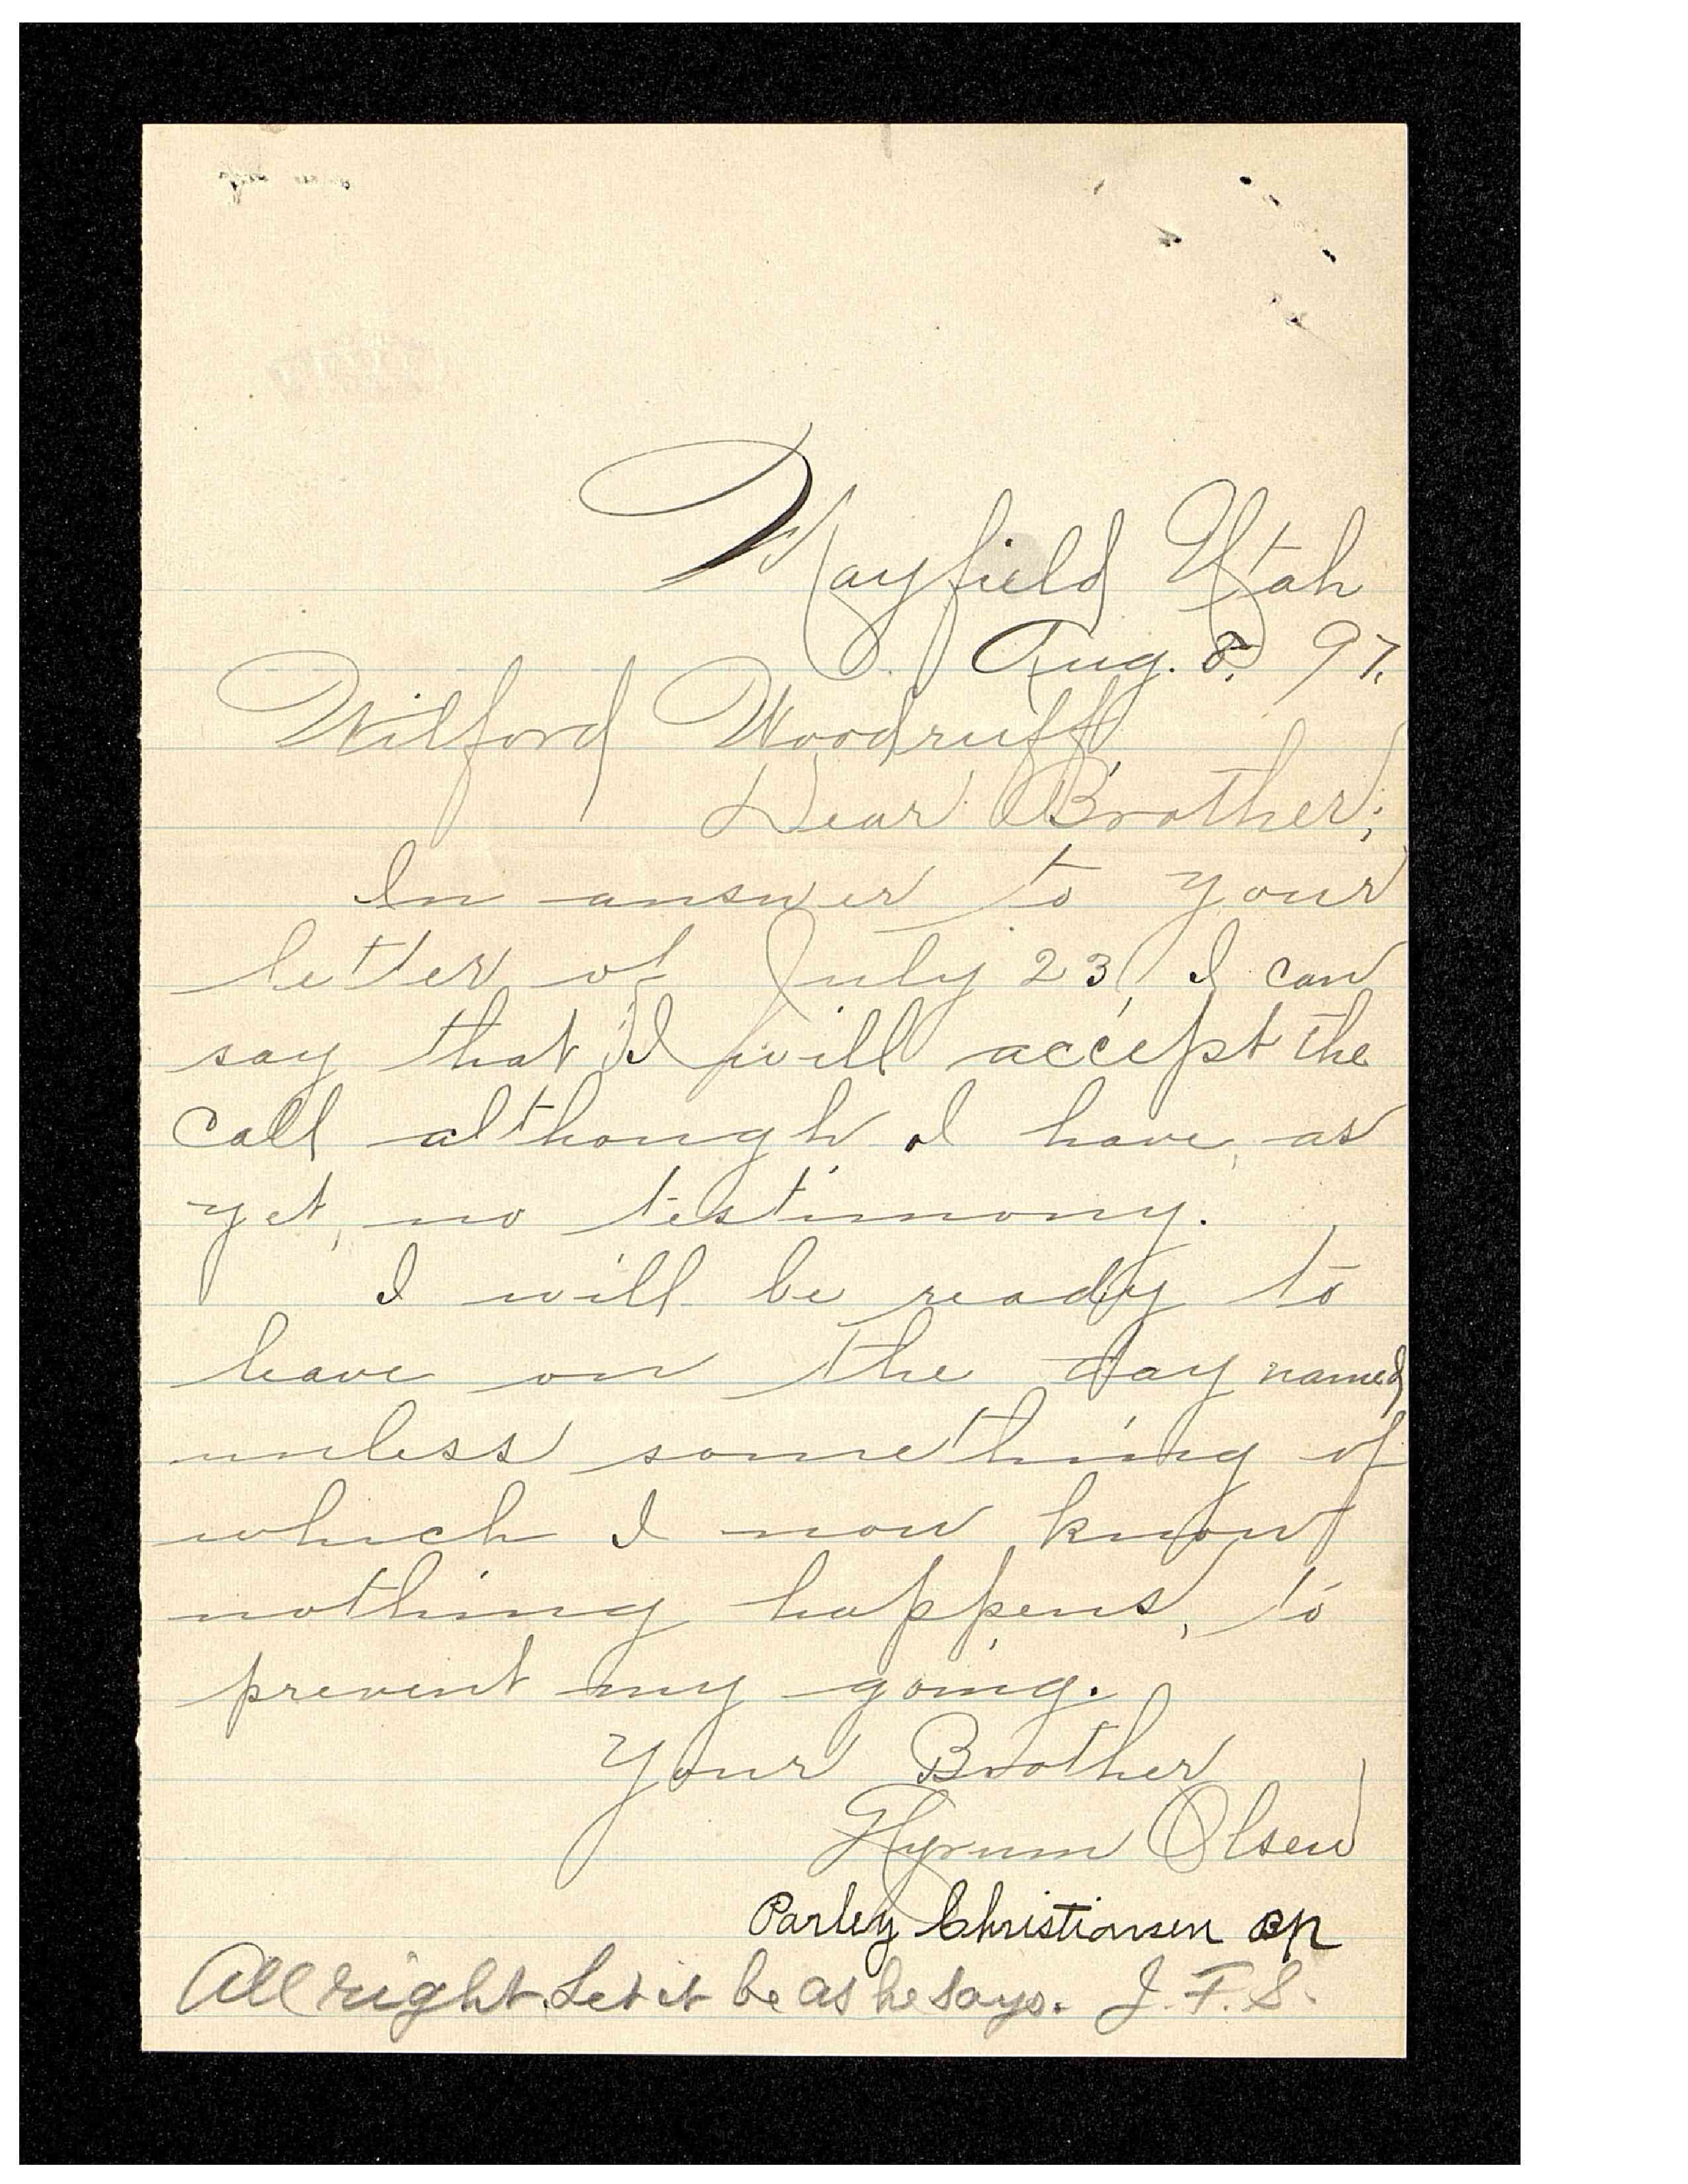 Mayfield Utah
Aug. 8, 97.
Wilford Woodruff,
Dear Brother;
In answer to your
letter of July 23, I can
say that I will accept the
call although I have, as
yet, no testimony.
I will be ready to
leave on the day named
unless something of
which I now know
nothing happens, to
prevent my going.
Your Brother
Hyrum Olsen
Parley Christiansen Bp
All right. Let it be as he says. J. F. S.